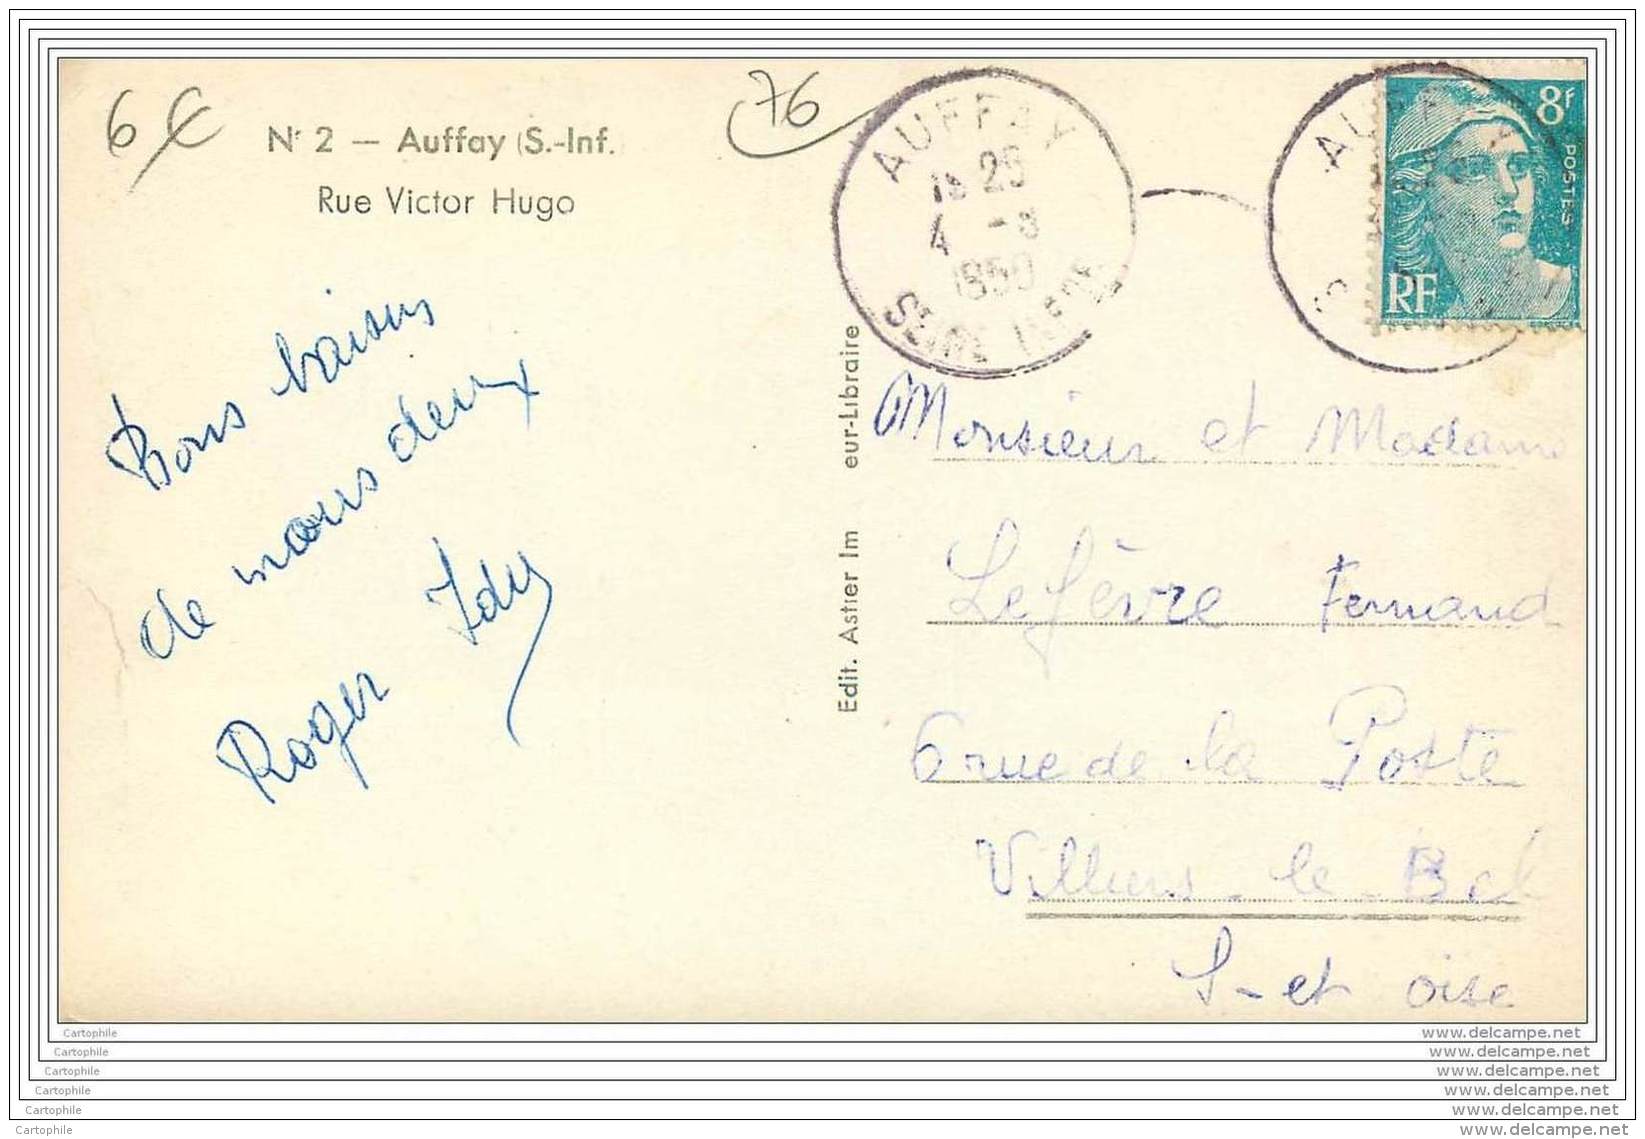 6€
76
Nº 2 — Auffay (S.-Inf.
Rue Victor Hugo
AUFFAY
25
4 -8
1950
SEINE INFRE
8F
POSTES
RF
Bons baisers
de nous deux
Roger
Edit. Astier Im eur-Libraire
Monsieur et Madame
Lefèvre Fernand
6 rue de la Poste
Villiers-le-Bel
S-et oise
Cartophile
Cartophile
Cartophile
Cartophile
Cartophile
Cartophile
www.delcampe.net
www.delcampe.net
www.delcampe.net
www.delcampe.net
www.delcampe.net
www.delcampe.net